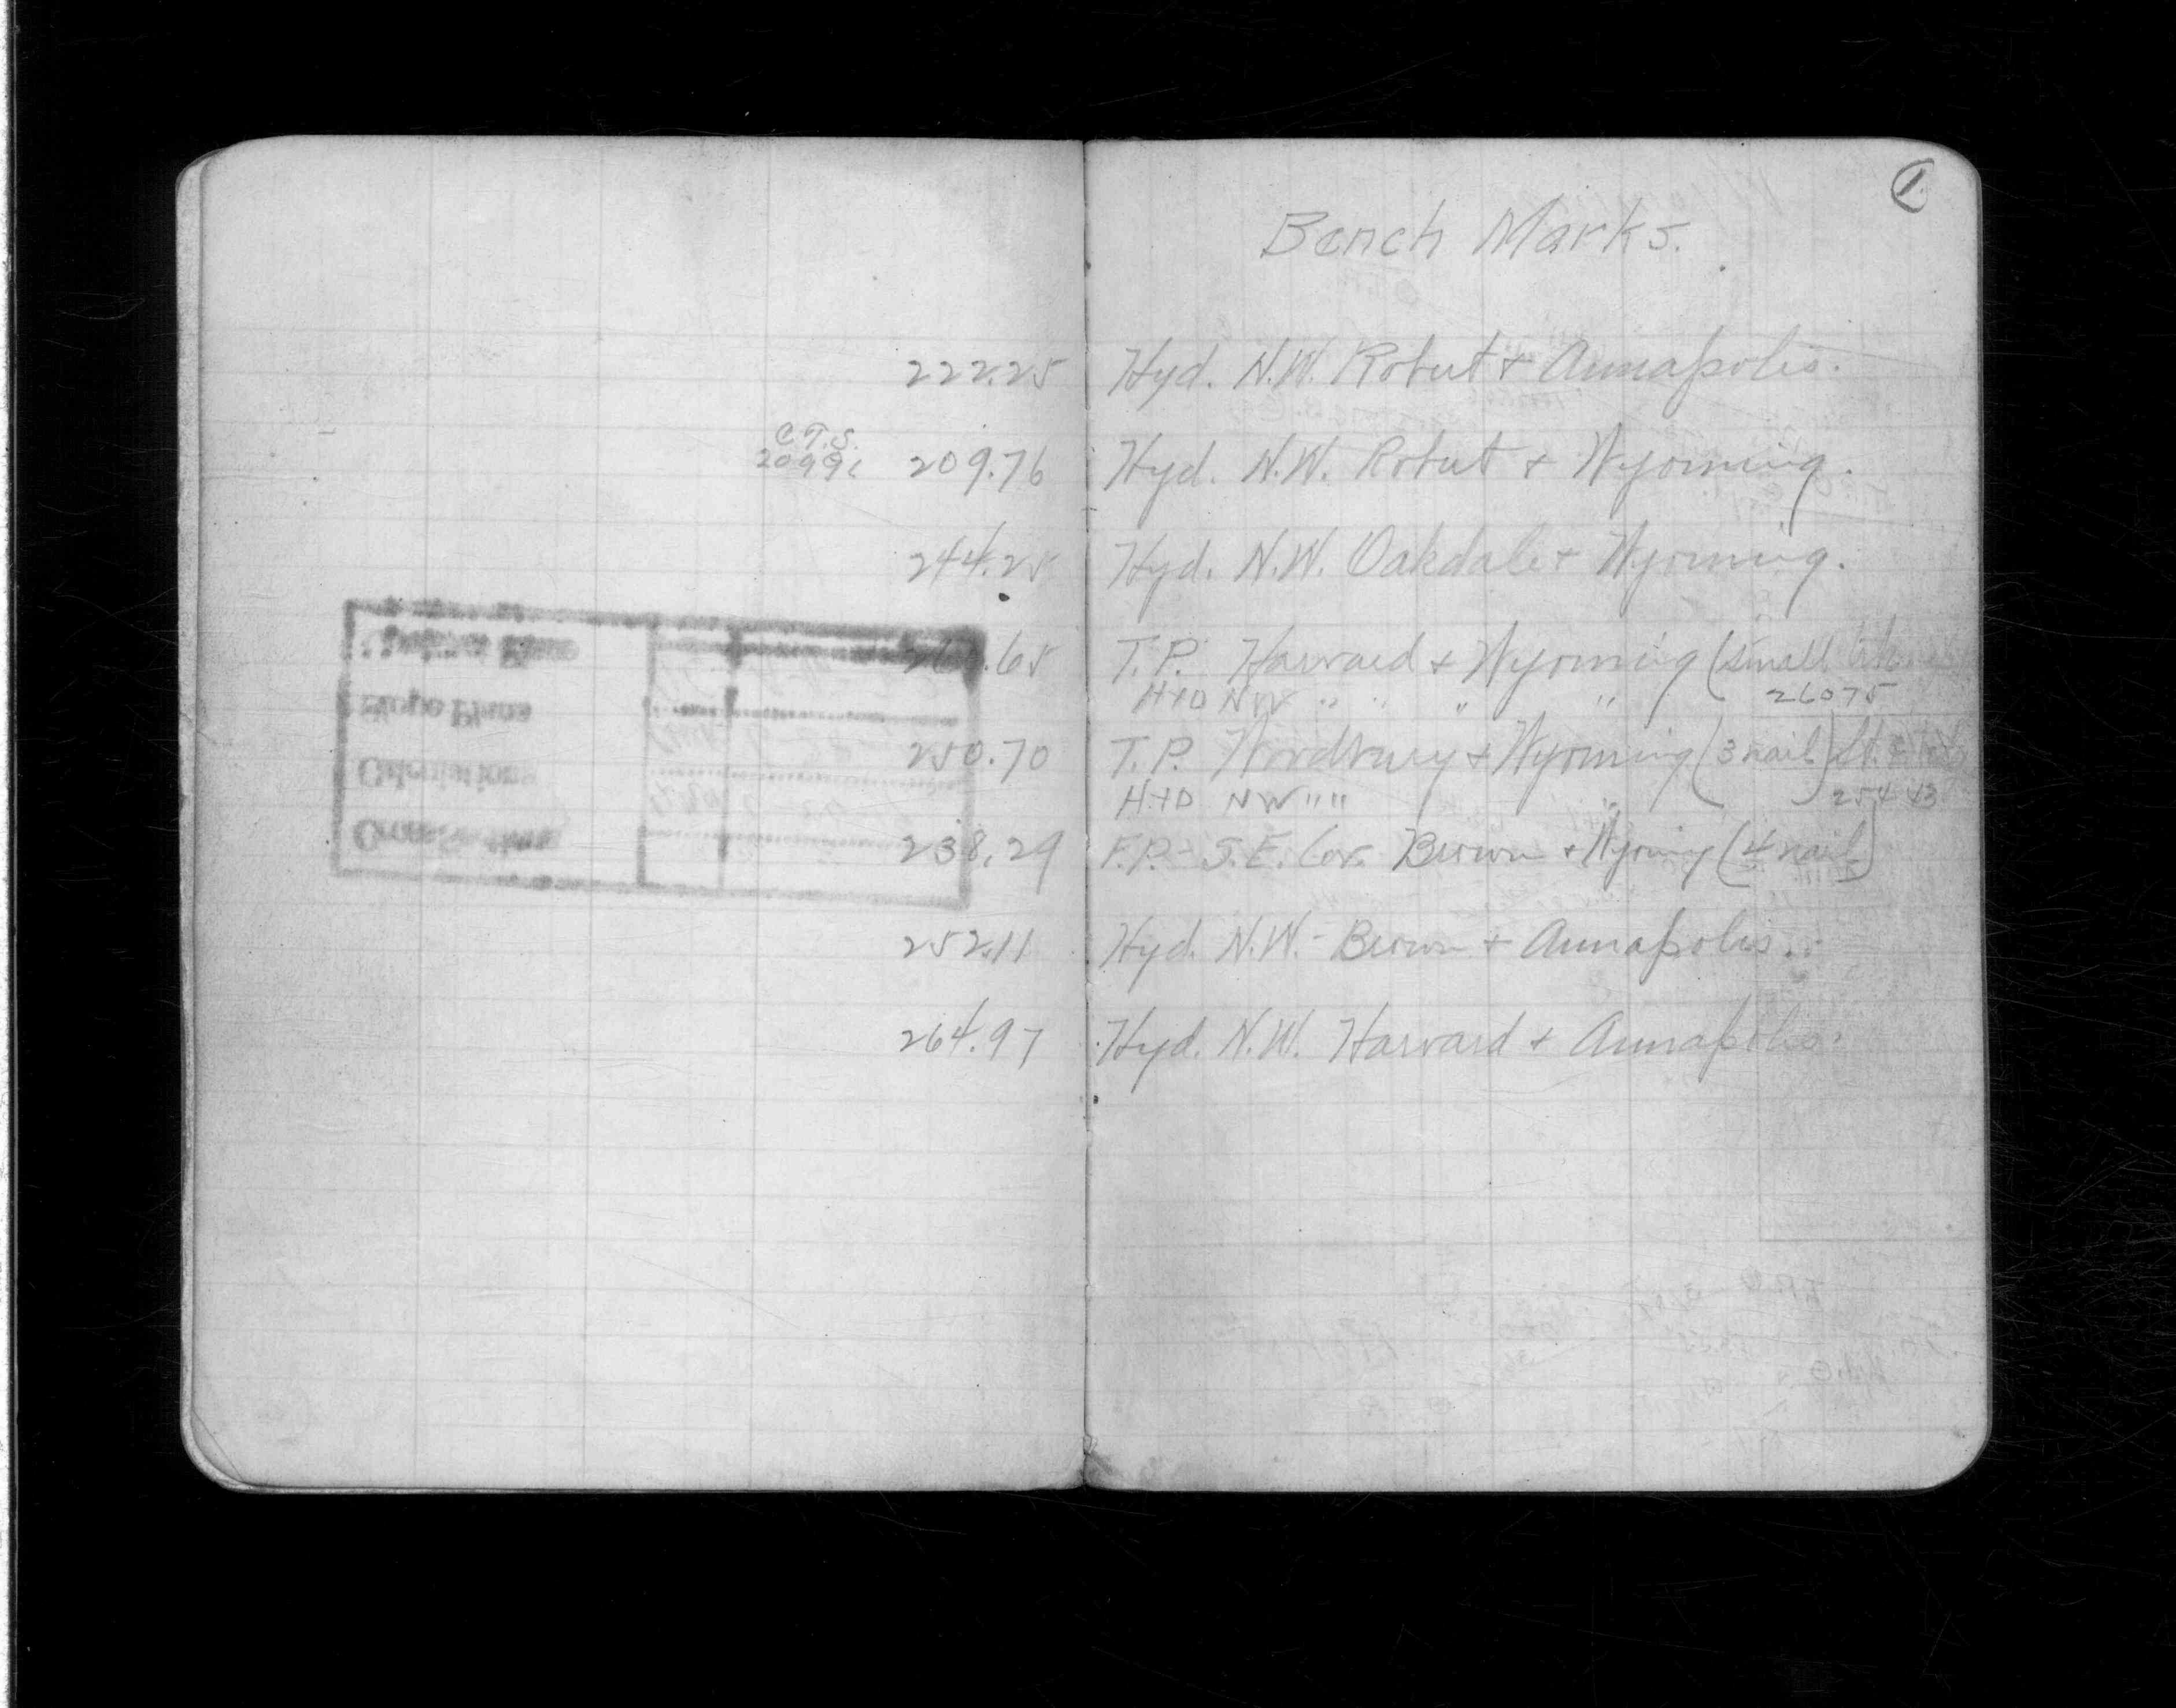 1.
Bench Marks.
222.25 Hyd. N.W. Robert + Annapolis.
C.T.S.
209.76 Hyd. N.W. Robert + Wyoming.
244.25 Hyd. N.W. Oakdale + Wyoming.
.65 T.P. Harvard + Wyoming (small
HYD NW " " " " 26075
250.70 T.P. Woodbury + Wyoming (3 nail)
HYD NW " " " 254 43
238.29 F.P.- S.E. Cor. Brown + Wyoming (4 nail)
252.11 Hyd. N.W.- Brown + Annapolis.
264.97 Hyd. N.W. Harvard + Annapolis.
Slope Plans
Calculations
Cross Sections